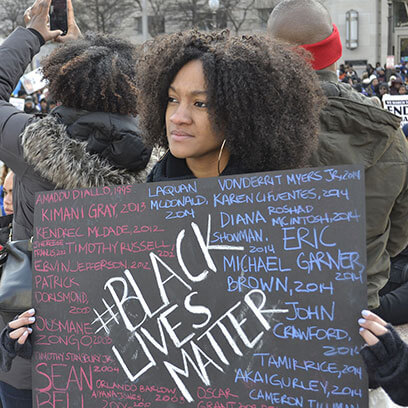 AMADOU DIALLO, 1995
KIMANI GRAY, 2013
KENDREC MCDADE, 2012
TIMOTHY RUSSELL
2012
ERVIN JEFFERSON, 2012
PATRICK
DORISMOND,
2000
OUSMANE
ZONGO
2003
TIMOTHY STANSBURY JR.
2004
SEAN
BELL
ORLANDO BARLOW
2003
LAQUAN
MCDONALD,
2014
#BLACK
LIVES
MATTER
OSCAR
GRANT
VONDERRIT MYERS JR., 2014
KAREN CIFUENTES, 2014
DIANA
SHOWMAN,
2014
ROSHAD
MCINTOSH, 2014
ERIC
GARNER
2014
MICHAEL
BROWN, 2014
JOHN
CRAWFORD,
2014
TAMIR RICE, 2014
AKAI GURLEY, 2014
CAMERON TILLMAN